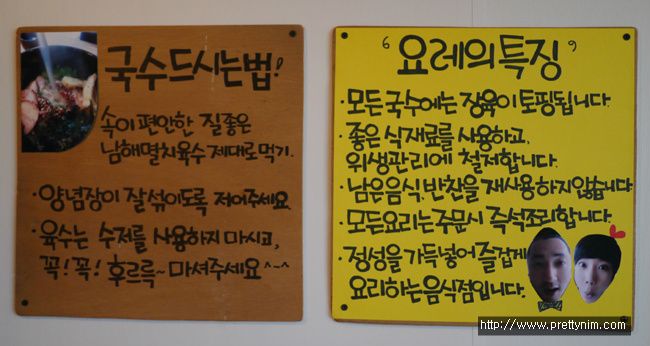 국수드시는법!
속이 편안한 질좋은
남해멸치육수 제대로 먹기.
· 양념장이 잘섞이도록 저어주세요.
· 육수는 수저를 사용하지 마시고,
꼭! 꼭! 후르륵~ 마셔주세요^-^
‘요레의 특징’
· 모든 국수에는 장육이 토핑됩니다.
· 좋은 식재료를 사용하고,
위생관리에 철저합니다.
· 남은음식, 반찬을 재사용하지않습니다
· 모든요리는 주문시 즉석조리합니다.
· 정성을 가득넣어 즐겁게
요리하는 음식점입니다.
http://www.prettynim.com